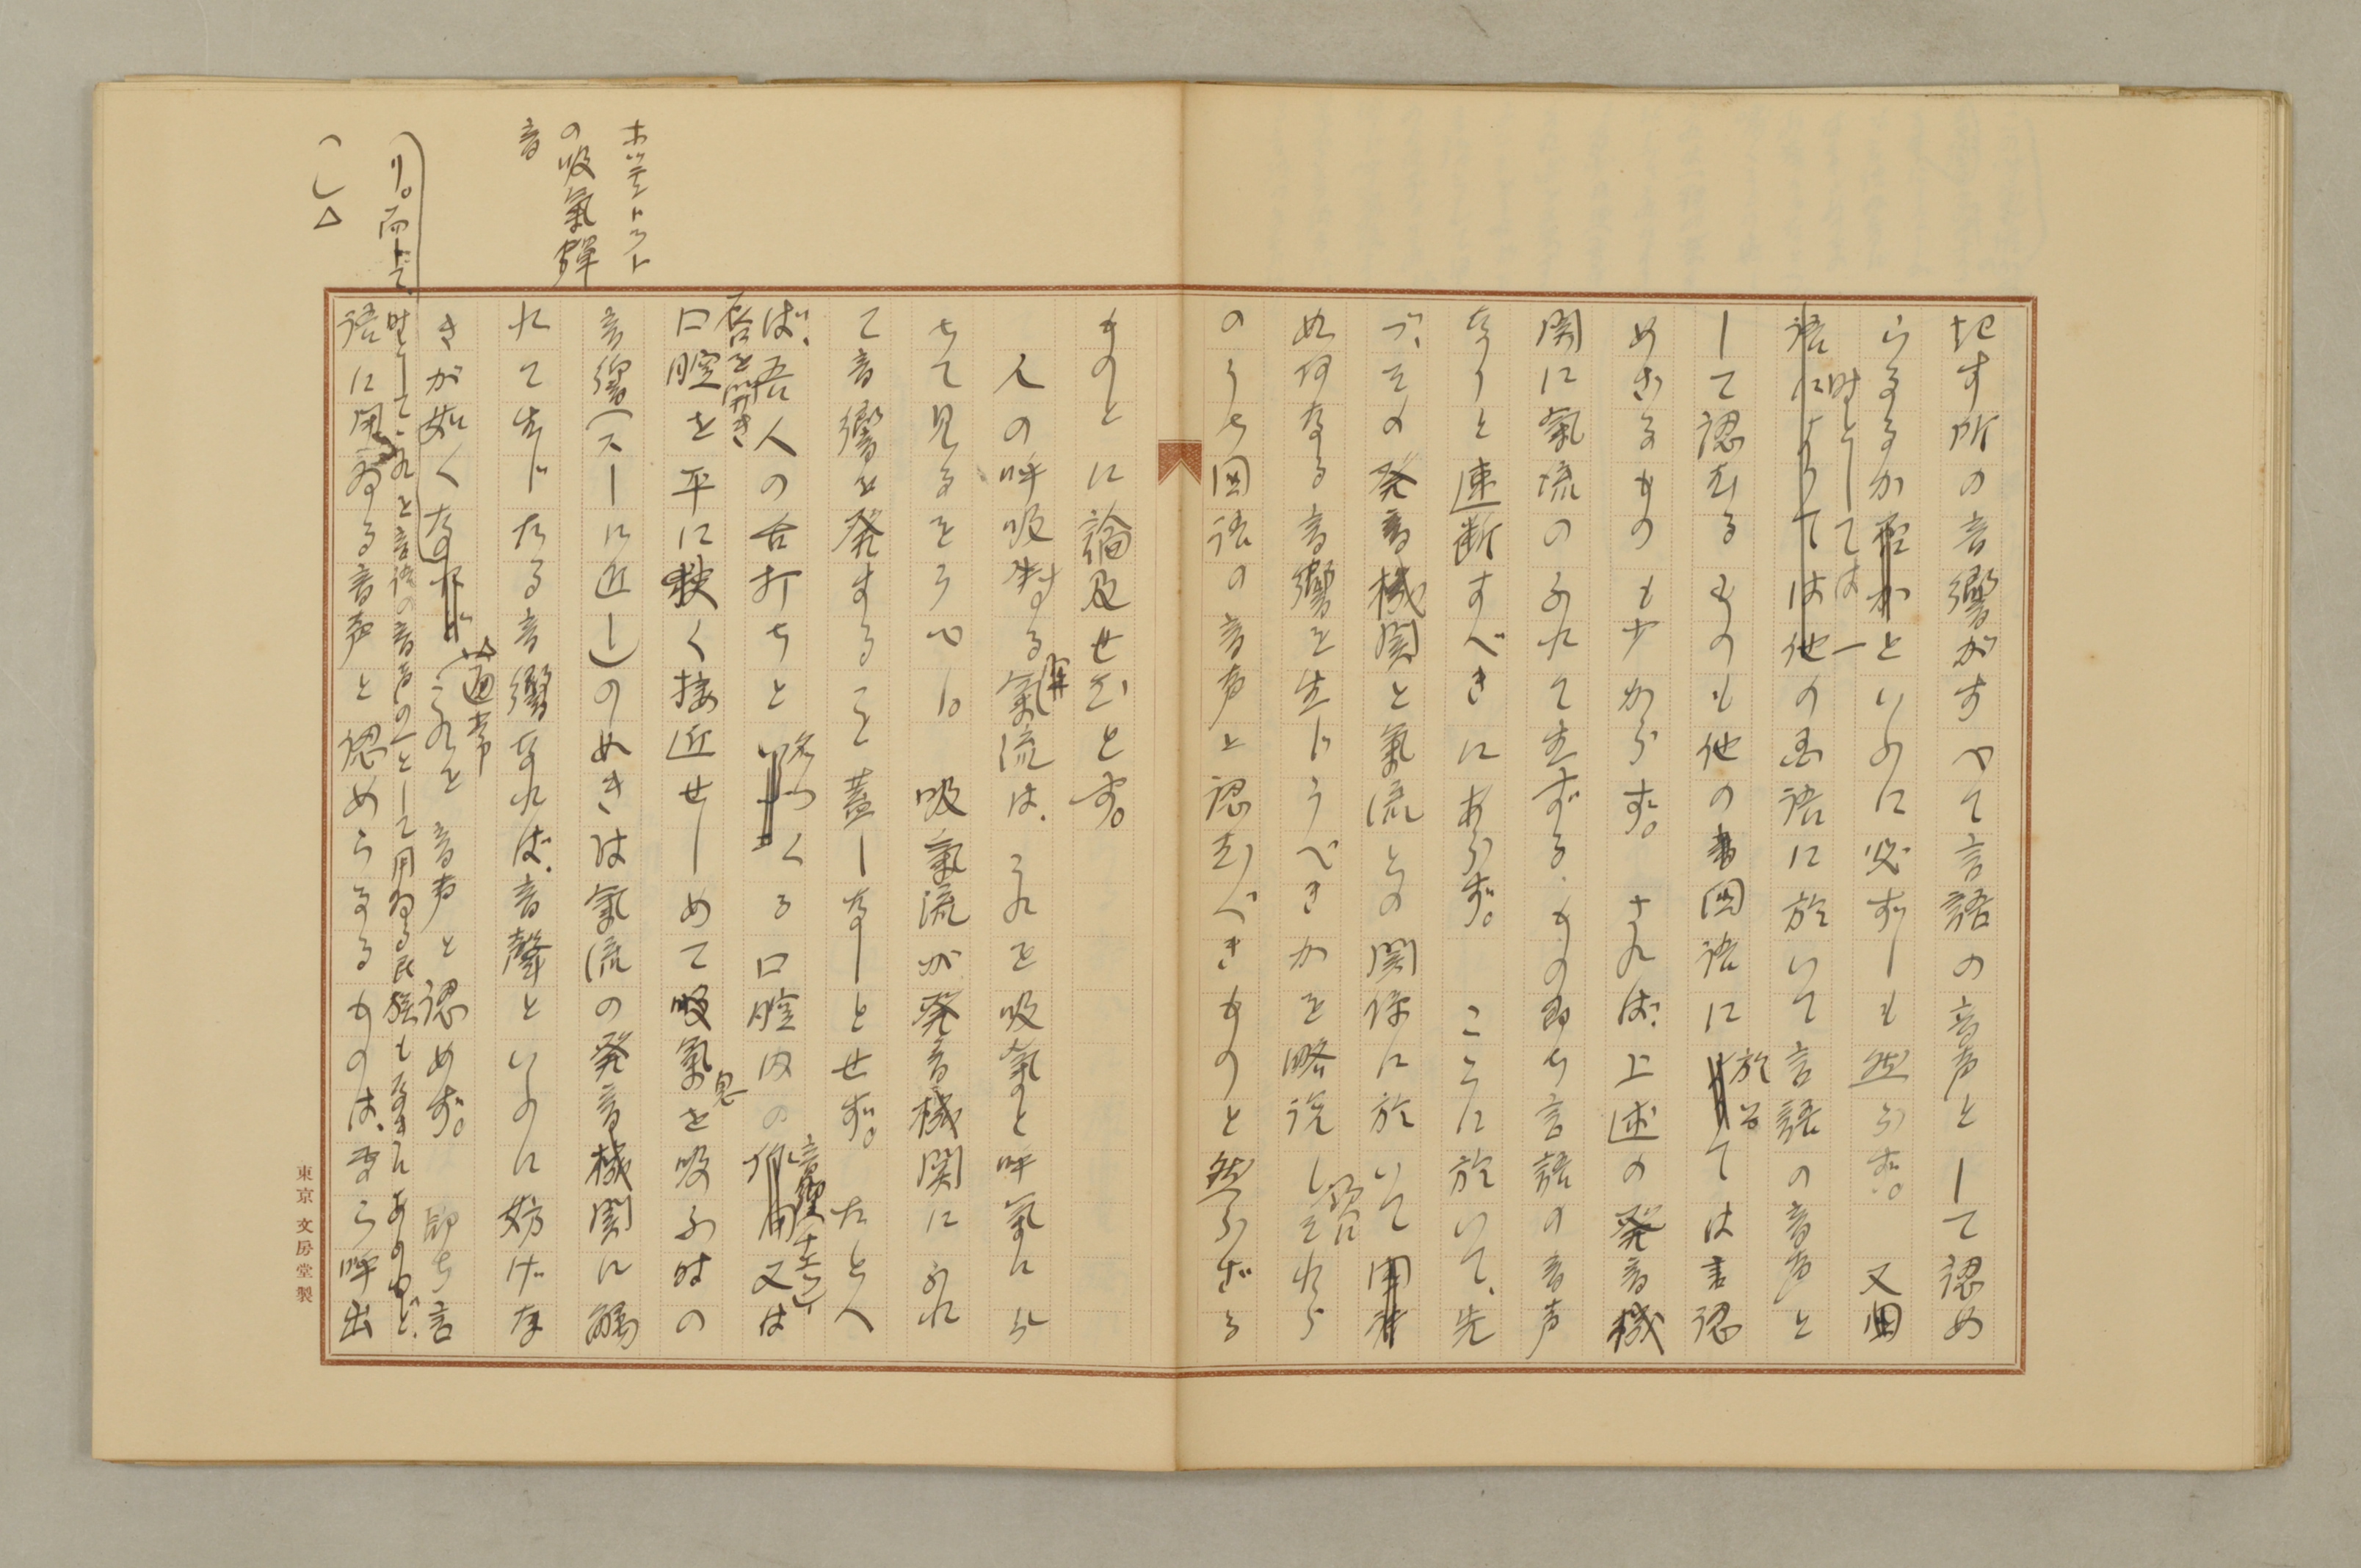 起す所の音響がすべて言語の音声として認め
らるるか否かといふに必ずしも然らず。又国
時としては一
語によりては他の国語に於いて言語の音声と
して認むるものも他の国語に
於る
ては言認
めざるもの も少からず。されば、上述の発音機
関に氣流のふれて生ずる、もの即ち言語の音声
なりと速断すべきにあらず。ここに於いて、先
づ、その発音機関と氣流との関係に於いて
如何なる音響を生じうべきかを略説しそれら
のうち国語の音声と認むべきものと然らざる
ものとに論及せむとす。
人の呼吸する氣流は、これを吸氣と呼氣に分
ちて見るをうべし。吸氣流が発音機関にふれ
て音響を発すること蓋しなしとせず。たとへ
ば、吾人の舌打ちと
名づ
くる口腔内の
又は
唇を開き
口腔を平に狭く接近せしめて吸氣を吸ふ時の
息
音響(スーに近し)のめきは氣流の発音機関に觸
れて生じたる音響なれば、音聲といふに妨げな
きが如くなれど
普通
これを音声と認めず。即ち言
り。而して、時としてこれを言語の音声の一として用ゐる民族もなきにあらねど、
語に用ゐる音声と認めらるるものは、専ら呼出
ホッテントット
の吸氣彈
音
東京 文房堂製